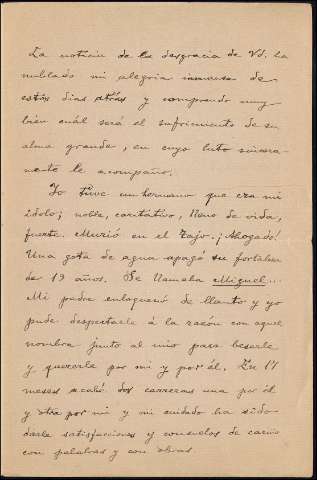 La noticia de la desgracia de Vd. ha
nublado mi alegria inmensa de
estos días atrás y comprendo muy
bien cuál será el sufrimiento de su
alma grande, en cuyo luto sincera-
mente le acompaño.
Yo tuve un hermano que era mi
ídolo; noble, caritativo, lleno de vida,
fuerte. Murió en el Tajo. ¡Ahogado!
Una gota de agua apagó su fortaleza
de 19 años. Se llamaba Miguel...
Mi padre enloqueció de llanto y yo
pude despertarle á la razón con aquel
nombre junto al mio para besarle
y quererle por mi y por él. En 17
meses acabé dos carreras una por él
y otra por mi y mi cuidado ha sido
darle satisfacciones y consuelos de cariño
con palabras y con obras.